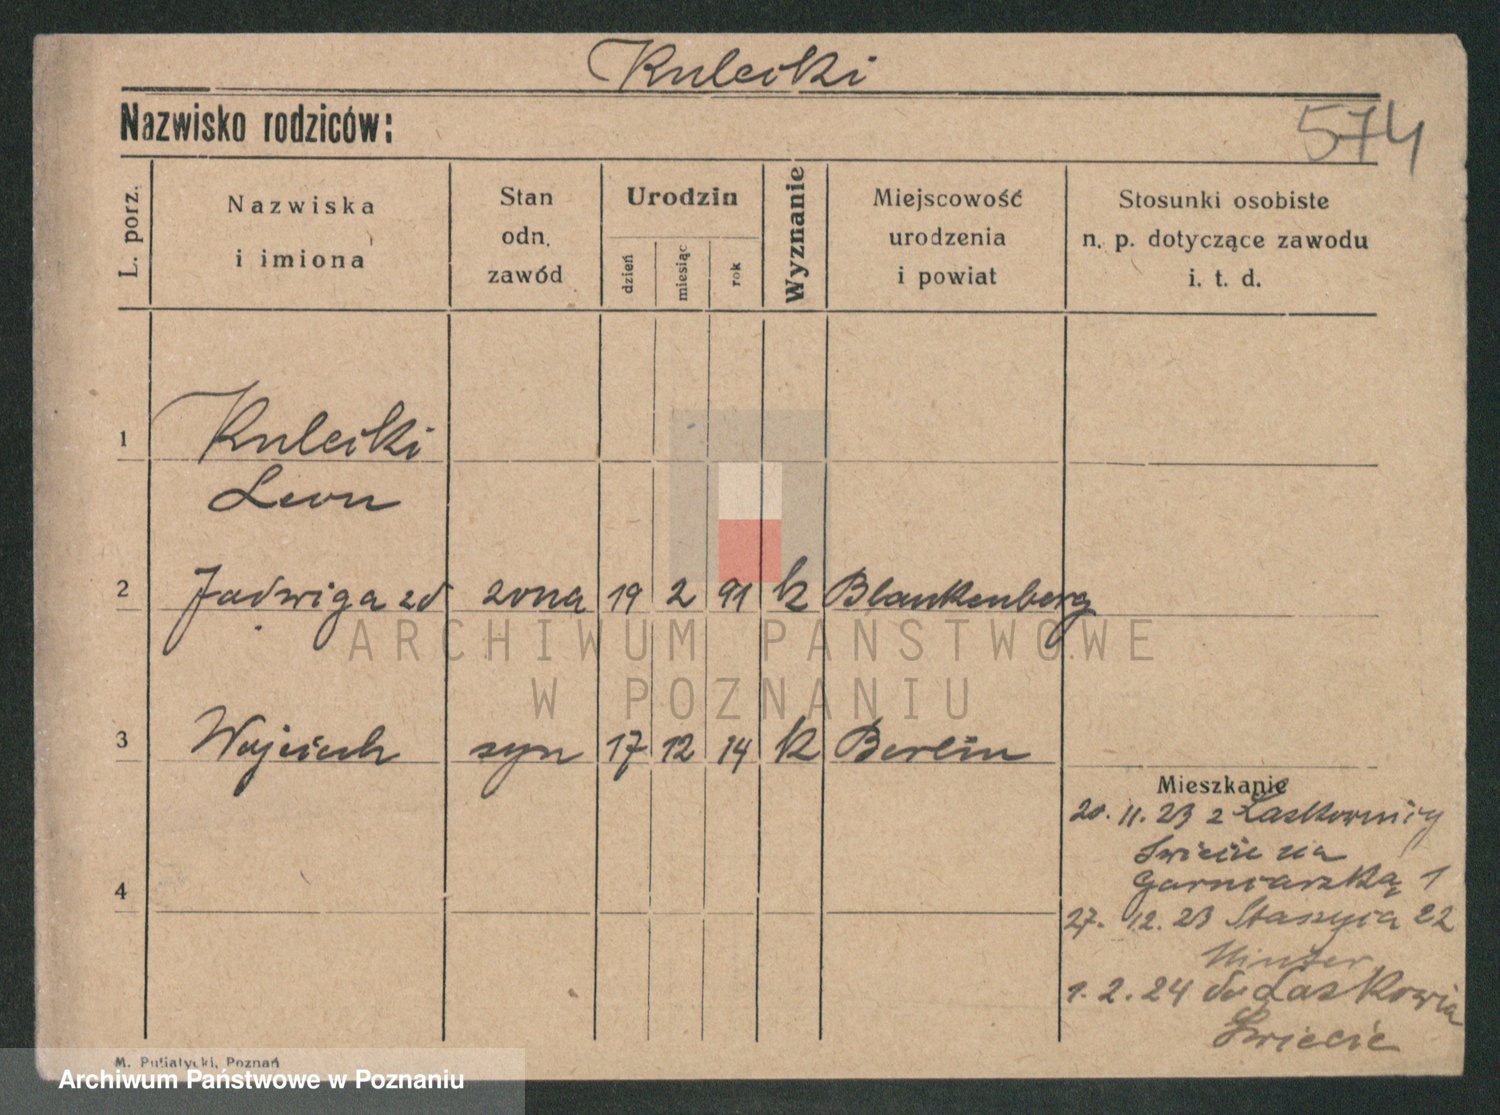 Kulciki
Nazwisko rodziców:
574
L. porz.
Nazwiska
i imiona
Stan
odn.
zawód
Urodzin
dzień
miesiąc
rok
Wyznanie
Miejscowość
urodzenia
i powiat
Stosunki osobiste
n. p. dotyczące zawodu
i. t. d.
1 Kulciki
Leon
2 Jadwiga zd żona 19 2 91 k Blankenberg
3 Wojciech syn 17 12 14 k Berlin
Mieszkanie
20. 11. 23 z Laskownicy
Świecie na
Garncarską 1
27. 12. 23 Staszyca 22
1. 2. 24 do Laskowia
Świecie
4
M. Putiatycki, Poznań
ARCHIWUM PAŃSTWOWE
W POZNANIU
Archiwum Państwowe w Poznaniu